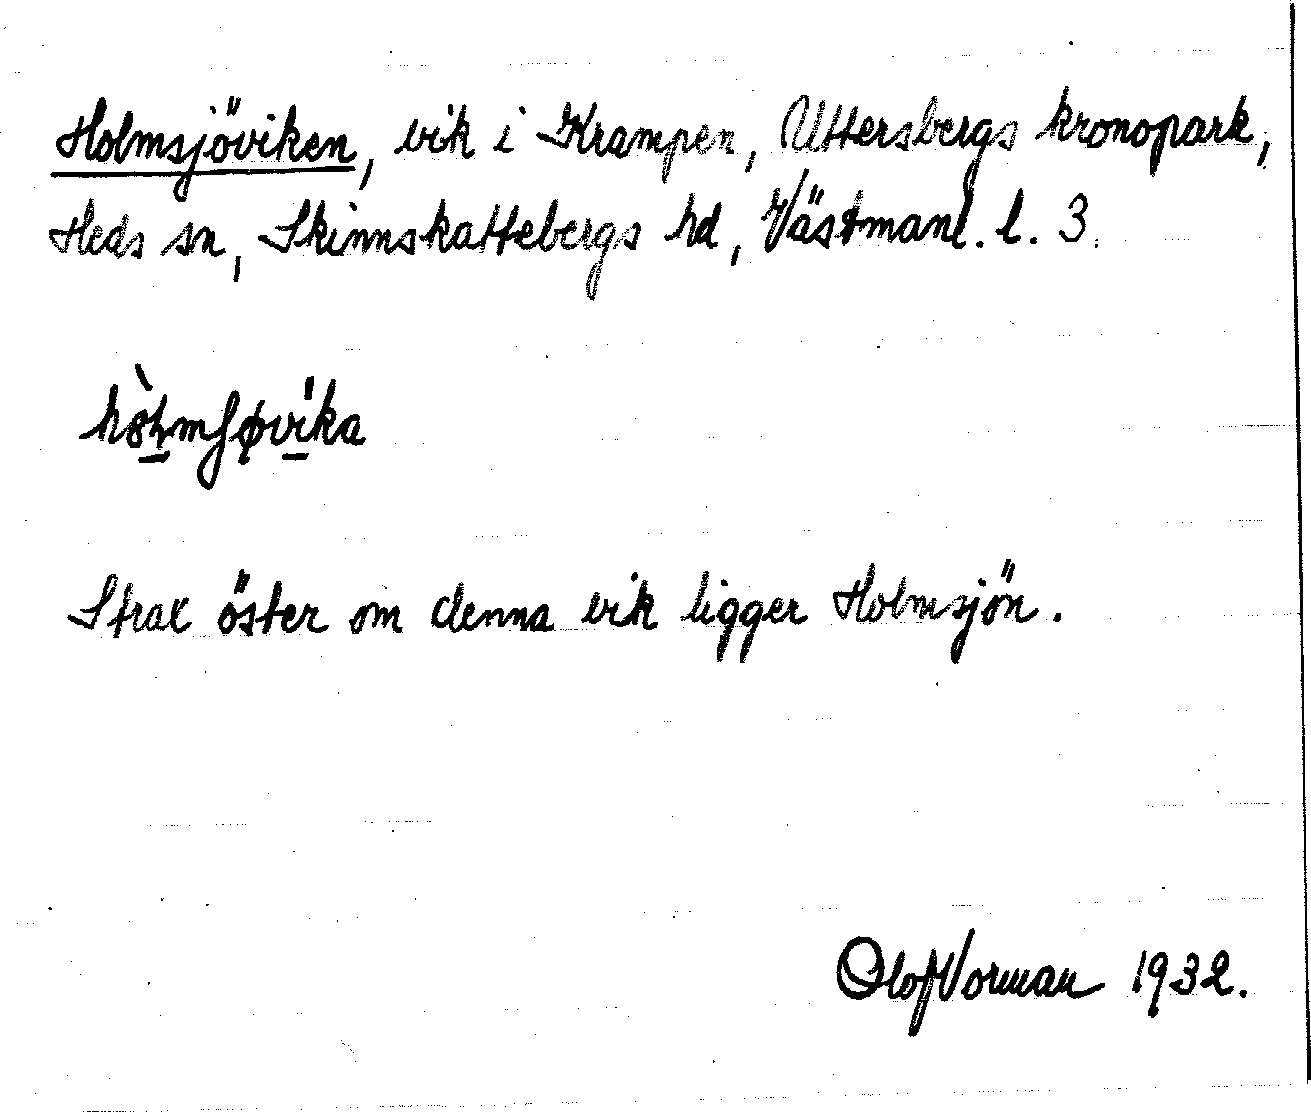 Holmsjöviken, vik i Krampen, Uttersbergs kronopark,
Heds sn, Skinnskattebergs hd, Västmanl. l. 3.
Strax öster om denna vik ligger Holmsjön.
Olof Norman 1932.